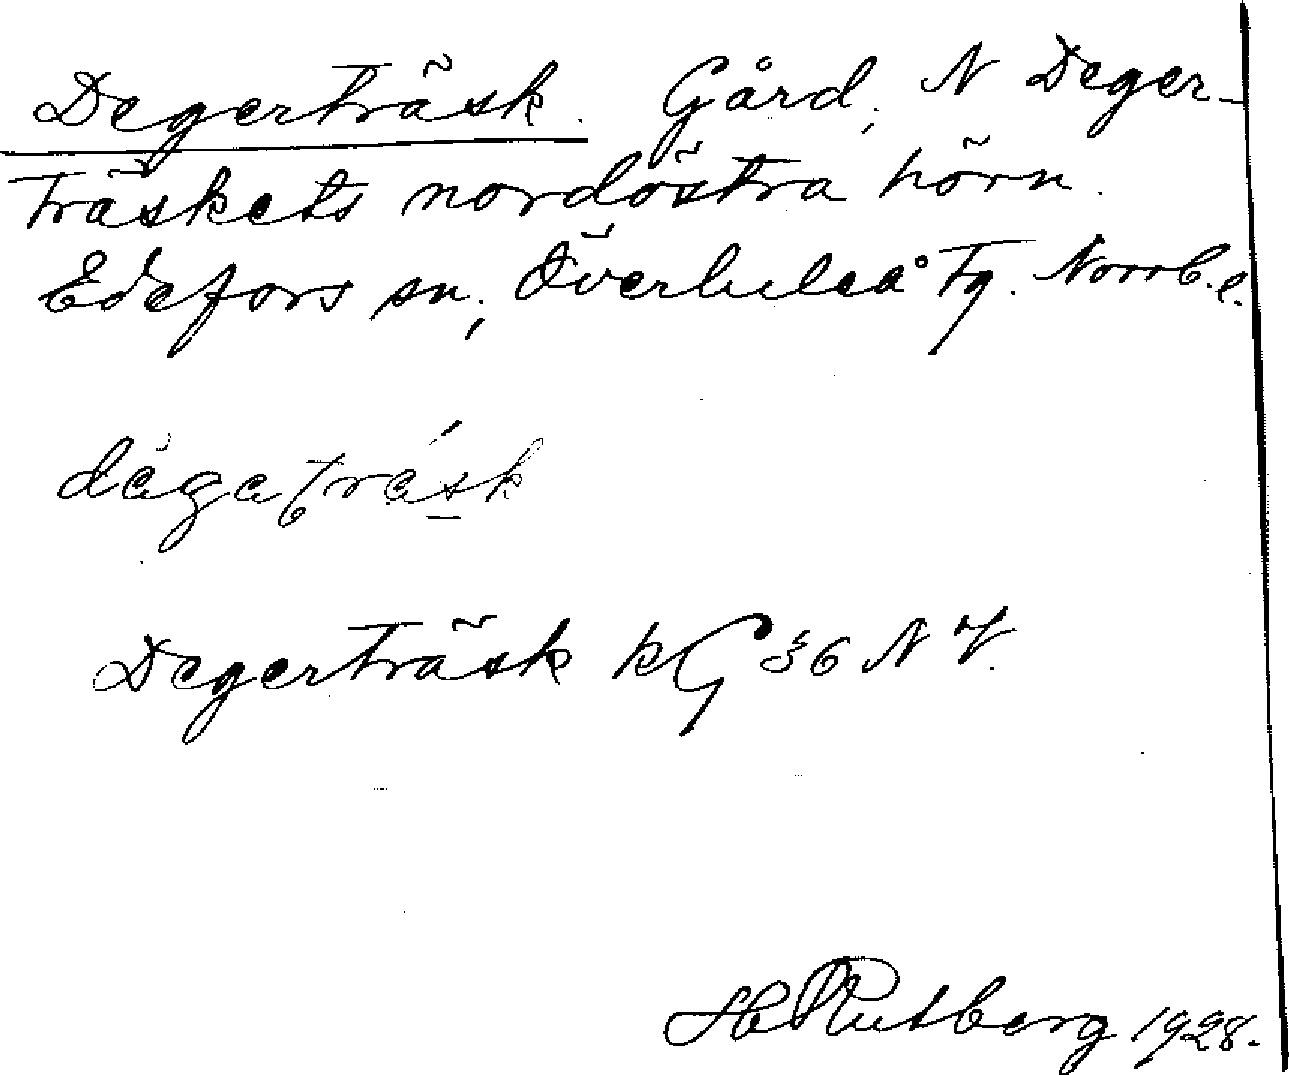 Degerträsk. Gård, N Deger-
träskets nordöstra hörn.
Edefors sn, Överluleå tg. Norrb. l.
Degerträsk kG 36 NV.
H Rutberg 1928.